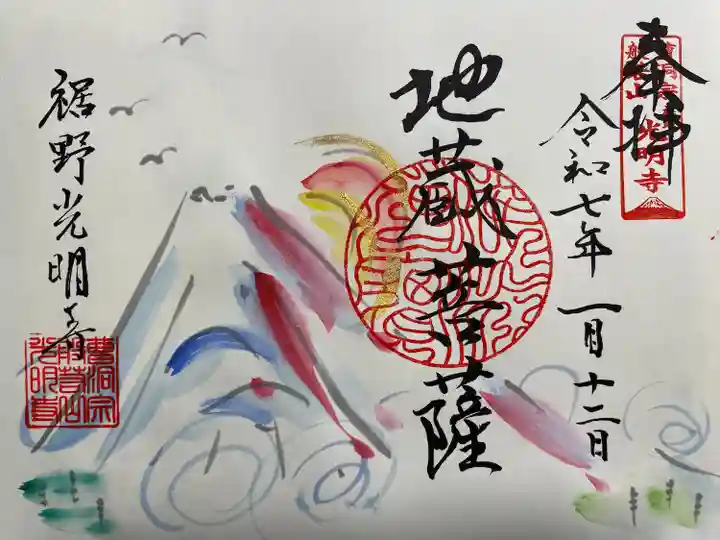 奉拝
令和七年一月十二日
地蔵菩薩
裾野光明寺
光明寺
曹洞宗